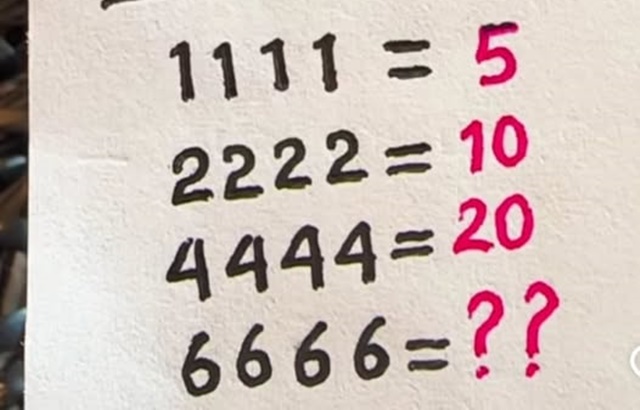 1111 = 5
2222 = 10
4444 = 20
6666 = ??